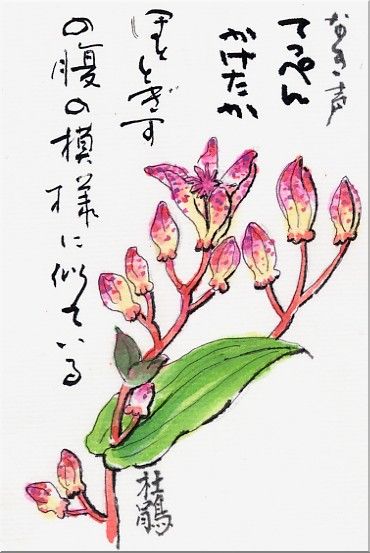 なき声
てっぺん
かけたか
ほととぎす
の腹の模様に似ている
杜鵑